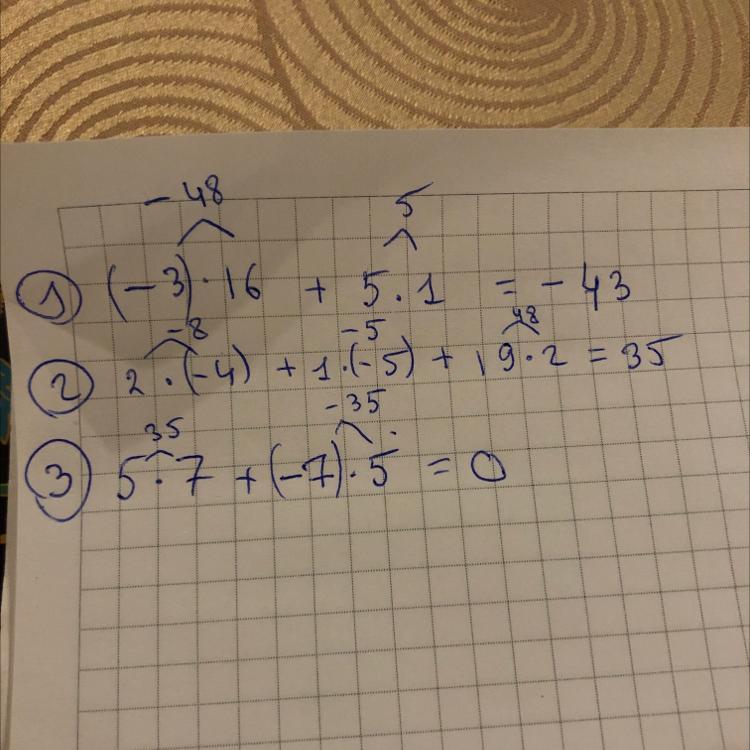 -48 5
① (-3)·16 + 5·1 = -43
-8 -5 48
② 2·(-4) + 1·(-5) + 19·2 = 35
35 -35
③ 5·7 + (-7)·5 = 0